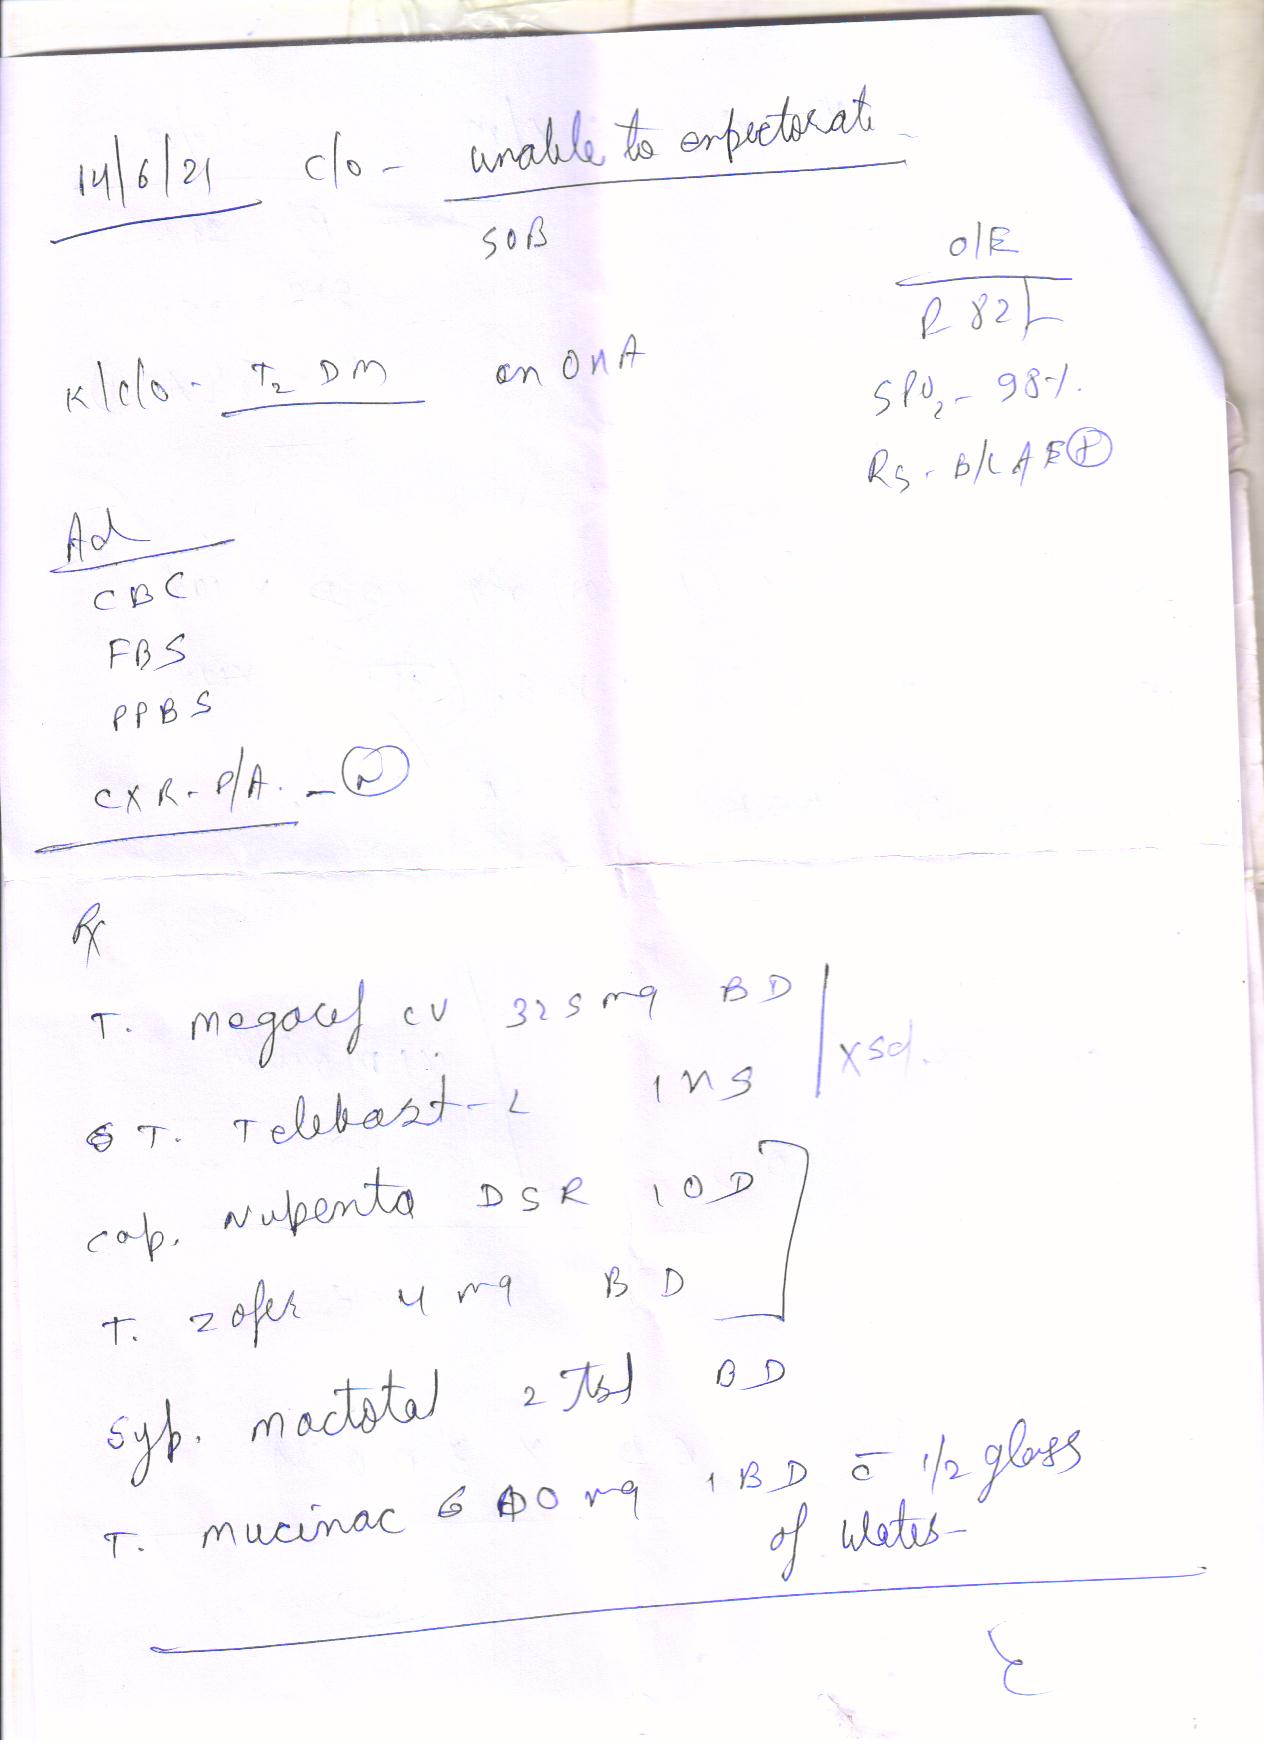 14/6/21 c/o - unable to expectorate
SOB
O/E
P 82/
SPO2 - 98%
RS - B/L AE (P)
K/c/o - T2 DM on OHA
Ad
CBC
FBS
PPBS
CXR - P/A. - (N)
Rx
T. Megacef CV 325 mg BD
T. Telekast-L 1 HS
x 5d.
cap. Nupenta DSR 1 OD
T. Zofer 4 mg BD
Syp. Mactotal 2 tsf BD
T. Mucinac 600 mg 1 BD c̄ 1/2 glass
of water